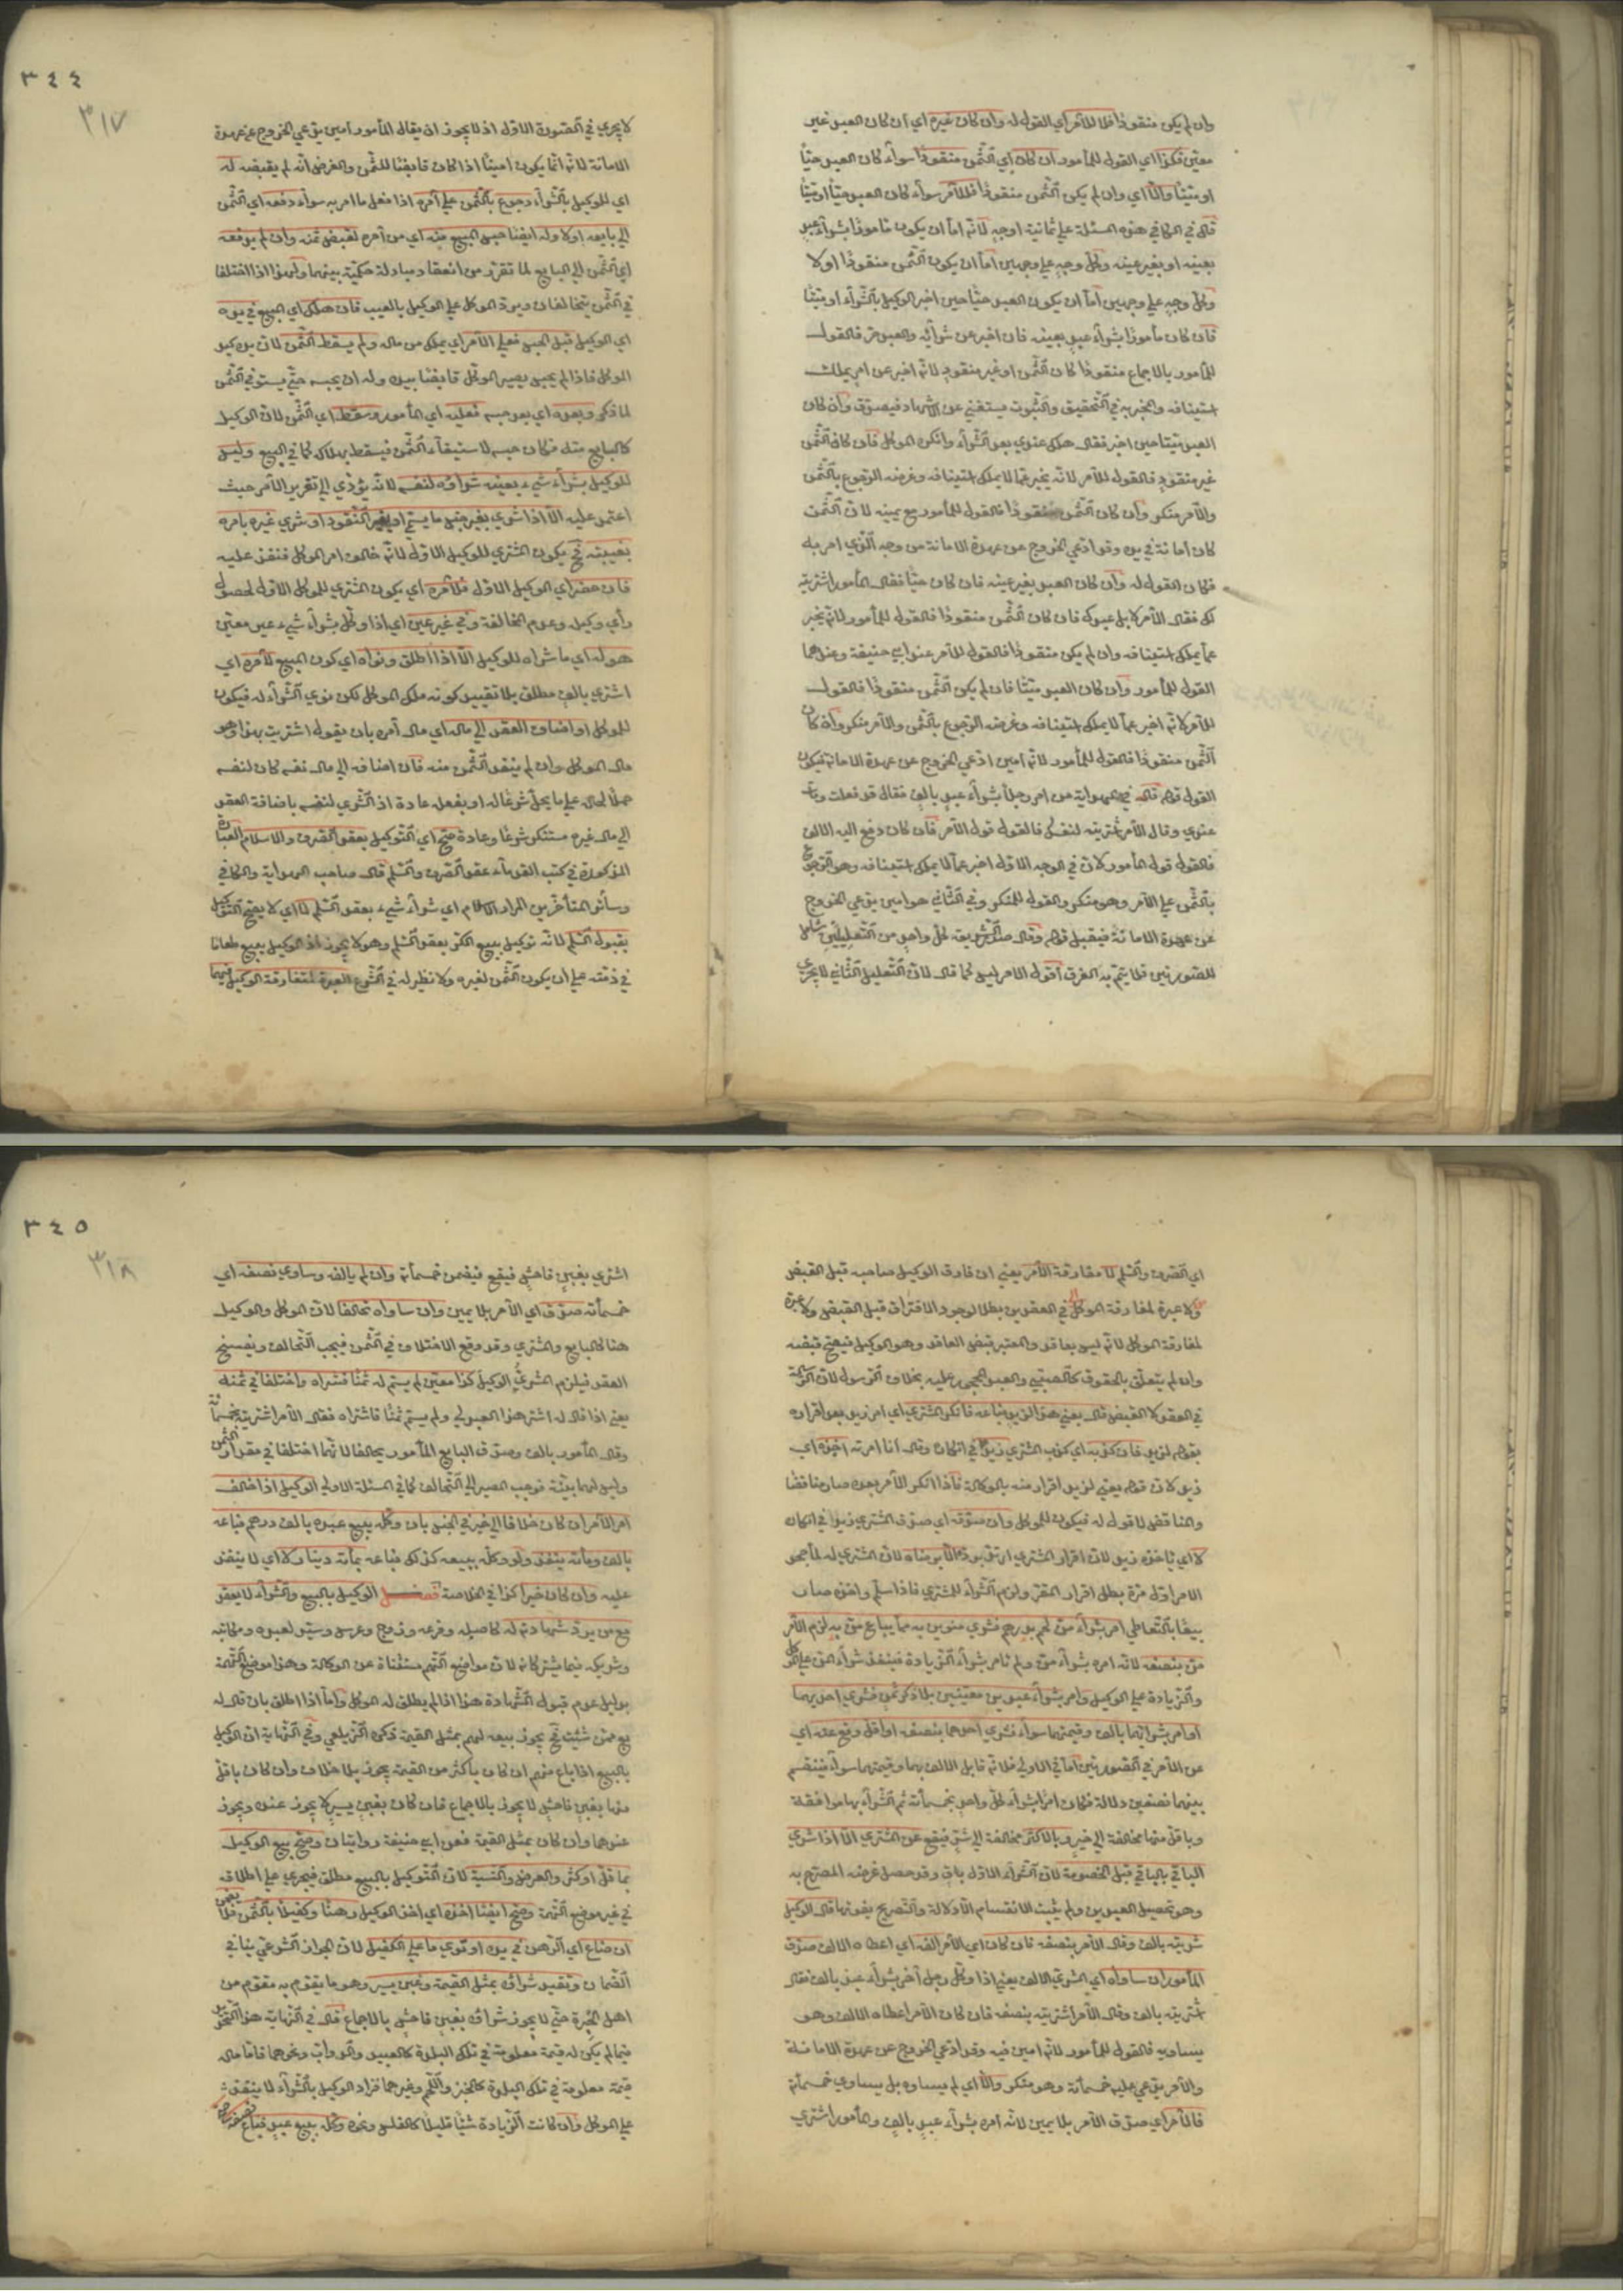 وان لم يكن منقودا فللآمر اي القول له وان كان غيره اي ان كان العبد غير
معين فكذا اي القول للمأمور ان كان اي الثمن منقودا سواء كان العبد حيا
او ميتا والا اي وان لم يكن الثمن منقودا فللآمر سواء كان العبد حيا او ميتا
قال في الكافي هذه المسئلة على ثمانية اوجه لانه اما ان يكون مامورا بشراء عبد
بعينه او بغير عينه وكل وجه على وجهين اما ان يكون الثمن منقودا او لا
وكل وجه على وجهين اما ان يكون العبد حيا حين اخبر الوكيل بالشراء او ميتا
فان كان مأمورا بشراء عبد بعينه فان اخبر عن شرائه والعبد حي فالقول
للمأمور بالاجماع منقودا كان الثمن او غير منقود لانه اخبر عن امر يملك
استينافه والمخبر به في التحقيق والثبوت يستغني عن الاشهاد فيصدق وان كان
العبد ميتا حين اخبر فقال هلك عندي بعد الشراء وانكره الموكل فان كان الثمن
غير منقود فالقول للآمر لانه يخبر عما لا يملك استينافه وغرضه الرجوع بالثمن
والآمر منكر وان كان الثمن منقودا فالقول للمأمور مع يمينه لان الثمن
كان امانة في يده وقد ادعى الخروج عن عهدة الامانة من وجه الذي امر به
فكان القول له وان كان العبد بغير عينه فان كان حيا فقال المأمور اشتريته
لك فقال الآمر لا بل عبدك فان كان الثمن منقودا فالقول للمأمور لانه يخبر
عما يملك استينافه وان لم يكن منقودا فالقول للآمر عند ابي حنيفة وعندهما
القول للمأمور وان كان العبد ميتا فان لم يكن الثمن منقودا فالقول
للآمر لانه اخبر عما لا يملك استينافه وغرضه الرجوع بالثمن والآمر منكر وان كان
الثمن منقودا فالقول للمأمور لانه امين ادعى الخروج عن عهدة الامانة فيكون
القول قوله قال في الهداية من امر رجلا بشراء عبد بالف فقال قد فعلت ومات
عندي وقال الآمر اشتريته لنفسك فالقول قول الآمر فان كان دفع اليه الالف
فالقول قول المأمور لان في الوجه الاول اخبر عما لا يملك استينافه وهو الرجوع
بالثمن على الآمر وهو منكر والقول للمنكر وفي الثاني هو امين يدعي الخروج
عن عهدة الامانة فيقبل قوله وقال صدر الشريعة كل واحد من التعليلين شامل
للصورتين فلا يتم به الفرق اقول الامر ليس كما قال لان التعليل الثاني لا يجري
٣٤٤
٣١٧
لا يجري في الصورة الاولى اذ لا يجوز ان يقال المأمور امين يدعي الخروج عن عهدة
الامانة لانه انما يكون امينا اذا كان قابضا للثمن والفرض انه لم يقبضه له
اي للوكيل بالشراء رجوع بالثمن على آمره اذا فعل ما امر به سواء دفعه اي الثمن
الى بايعه او لا وله ايضا حبس المبيع منه اي من آمره لقبض ثمنه وان لم يدفعه
اي الثمن الى البايع لما تقرر من انعقاد مبادلة حكمية بينهما ولهذا اذا اختلفا
في الثمن يتحالفان ويرد الموكل على الوكيل بالعيب فان هلك اي المبيع في يده
اي الوكيل قبل الحبس فعلى الآمر اي يهلك من ماله ولم يسقط الثمن لان يده كيد
الموكل فاذا لم يحبس يصير الموكل قابضا بيده وله ان يحبسه حتى يستوفي الثمن
لما ذكر وبعده اي بعد حبسه فعليه اي المأمور وسقط اي الثمن لان الوكيل
كالبايع منه فكان حبسه لاستيفاء الثمن فيسقط بهلاكه كما في البيع وليس
للوكيل بشراء شيء بعينه شراؤه لنفسه لانه يؤدي الى تغرير الآمر حيث
اعتمد عليه الا اذا شرى بغير جنس ما يسمى او بغير النقود او شرى غيره بامره
بغيبته فح يكون المشتري للوكيل الاول لانه خالف امر الموكل فنفذ عليه
فان حضر اي الوكيل الاول فلآمره اي يكون المشتري للموكل الاول لحصول
رأي وكيله وعدم المخالفة وفي غير عين اي اذا وكل بشراء شيء غير معين
هو له اي ما شراه للوكيل الا اذا اطلق ونواه اي كون المبيع لآمره اي
اشترى بالف مطلق بلا تقييد كونه ملك الموكل لكن نوى الشراء له فيكون
للموكل او اضاف العقد الى ماله اي مال آمره بان يقول اشتريت بهذا وهو
مال الموكل وان لم ينقد الثمن منه فان اضافه الى مال نفسه كان لنفسه
حملا لحاله على ما يحل شرعا له او يفعله عادة اذ الشرى لنفسه باضافة العقد
الى مال غيره مستنكر شرعا وعادة صح اي التوكيل بعقد الصرف والاسلام العبارة
المذكورة في كتب القدماء عقد الصرف والسلم قال صاحب الهداية والكافي
وسائر المتأخرين المراد الاسلام اي شراء شيء بعقد السلم لا اي لا يصح التوكيل
بقبول السلم لانه توكيل ببيع الكر بعقد السلم وهو لا يجوز اذ الوكيل يبيع طعاما
في ذمته على ان يكون الثمن لغيره ولا نظير له في الشرع العبرة لمفارقة الوكيل فيهما
اي الصرف والسلم لا مفارقة الآمر يعني ان فارق الوكيل صاحبه قبل القبض
ولا عبرة لمفارقة الموكل في العقدين بطلا لوجود الافتراق قبل القبض ولا عبرة
لمفارقة الموكل لانه ليس بعاقد والمعتبر قبض العاقد وهو الوكيل فيصح قبضه
وان لم يتعلق به الحقوق كالصبي والعبد المحجور عليه بخلاف الرسول لان الرسالة
في العقد لا القبض قال بعني هذا لزيد فباعه فانكر المشتري اي امر زيد بعد اقراره
بقوله لزيد فان كذبه اي كذب المشتري زيد في انكاره وقال انا امرته اخذه اي
زيد لان قوله بعني لزيد اقرار منه بالوكالة فاذا انكر الآمر بعده صار مناقضا
والمناقض لا قول له فيكون للموكل وان صدقه اي صدق المشتري زيد في انكاره
لا اي يأخذه زيد لان اقرار المشتري ارتد برده الا برضاه لان المشتري له لما جحد
الامر اول مرة بطل اقرار المقر ولزم الشراء للمشتري فاذا سلم واخذه صار
بيعا بالتعاطي امر بشراء من لحم بدرهم فشرى منوين به مما يباع من به لزم الآمر
من بنصفه لانه امره بشراء من ولم يامر بشراء الزيادة فينفذ شراء المن على الموكل
والزيادة على الوكيل وامر بشراء عبدين معينين بلا ذكر ثمن فشرى احدهما
او امر بشرائهما بالف وقيمتهما سواء فشرى احدهما بنصفه او اقل وقع عنه اي
عن الآمر في الصورتين اما في الاولى فلانه قابل الالف بهما وقيمتهما سواء فينقسم
بينهما نصفين دلالة فكان امرا بشراء كل واحد بخمسمائة ثم الشراء بها موافقة
وباقل منها مخالفة الى خير وبالاكثر مخالفة الى شر فيقع عن المشتري الا اذا شرى
الباقي بالباقي قبل الخصومة لان الشراء الاول باق وقد حصل غرضه المصرح به
وهو تحصيل العبدين ولم يثبت الانقسام الا دلالة والتصريح يفوقها قال الوكيل
شريته بالف وقال الآمر بنصفه فان كان اي الآمر الفه اي اعطاه الالف صدق
المأمور ان ساواه اي المشرى الالف يعني اذا وكل رجل آخر بشراء عبد بالف فقال
اشتريته بالف وقال الآمر اشتريته بنصفه فان كان الآمر اعطاه الالف وهو
يساويه فالقول للمأمور لانه امين فيه وقد ادعى الخروج عن عهدة الامانة
والآمر يدعي عليه خمسمائة وهو منكر والا اي لم يساوه بل يساوي خمسمائة
فالآمر اي صدق الآمر بلا يمين لانه امره بشراء عبد بالف والمأمور اشترى
٣٤٥
٣١٨
اشترى بغبن فاحش فيقع فيضمن خمسمائة وان لم يالفه وساوى نصفه اي
خمسمائة صدق اي الآمر بلا يمين وان ساواه تحالفا لان الموكل والوكيل
هنا كالبايع والمشتري وقد وقع الاختلاف في الثمن فيجب التحالف ويفسخ
العقد فيلزم المشرى الوكيل كذا معين لم يسم له ثمنا فشراه واختلفا في ثمنه
يعني اذا قال له اشتر هذا العبد لي ولم يسم ثمنا فاشتراه فقال الآمر اشتريته بخمسمائة
وقال المأمور بالف وصدق البايع المأمور يحالفا لانهما اختلفا في مقدار الثمن
وليس لهما بينة فوجب المصير الى التحالف كما في المسئلة الاولى الوكيل اذا خالف
امر الآمر ان كان خلافا الى خير في الجنس بان وكله ببيع عبده بالف درهم فباعه
بالف ومائة ينفذ ولو وكله ببيعه كذلك فباعه بمائة دينار لا اي لا ينفذ
عليه وان كان خيرا كذا في الخلاصة فصل الوكيل بالبيع والشراء لا يعقد
مع من يرد شهادته له كاصله وفرعه وزوج وعرس وسيد لعبده ومكاتبه
وشريكه فيما يشتركانه لان مواضع التهم مستثناة عن الوكالة وهذا موضع التهمة
بدليل عدم قبول الشهادة هذا اذا لم يطلق له الموكل واما اذا اطلق بان قال له
بع ممن شئت فح يجوز بيعه لهم بمثل القيمة ذكره الزيلعي وفي النهاية ان الوكيل
بالبيع اذا باع منهم ان كان باكثر من القيمة يجوز بلا خلاف وان كان باقل
منها بغبن فاحش لا يجوز بالاجماع فان كان بغبن يسير لا يجوز عنده ويجوز
عندهما وان كان بمثل القيمة فعن ابي حنيفة روايتان وصح بيع الوكيل
بما قل او كثر والعرض والنسية لان التوكيل بالبيع مطلق فيجري على اطلاقه
في غير موضع التهمة وصح ايضا اخذه اي اخذ الوكيل رهنا وكفيلا بالثمن فلا يضمن
ان ضاع اي الرهن في يده او توى ما على الكفيل لان الجواز الشرعي ينافي
الضمان وتقيد شراؤه بمثل القيمة وغبن يسير وهو ما يقوم به مقوم من
اهل الخبرة حتى لا يجوز شراؤه بغبن فاحش بالاجماع قال في النهاية هذا التحرير
فيما لم يكن له قيمة معلومة في تلك البلدة كالعبيد والدواب ونحوهما فاما ماله
قيمة معلومة في تلك البلدة كالخبز واللحم وغيرهما فزاد الوكيل بالشراء لا ينفذ
على الموكل وان كانت الزيادة شيئا قليلا كالفلس ونحوه وكله ببيع عبد فباع نصفه صح